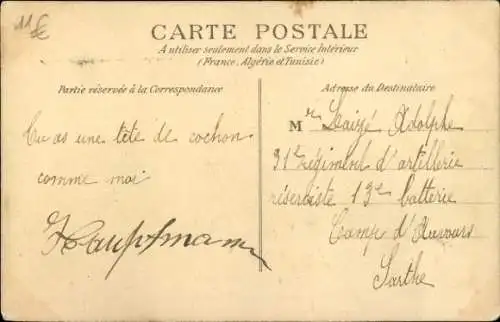 11€
CARTE POSTALE
A utiliser seulement dans le Service Intérieur
(France, Algérie et Tunisie)
Partie réservée à la Correspondance
Tu as une tête de cochon
comme moi
Hauptmann
Adresse du Destinataire
Mr Laizé Adolphe
31e régiment d'artillerie
réserviste 13e batterie
Camp d'Auvours
Sarthe